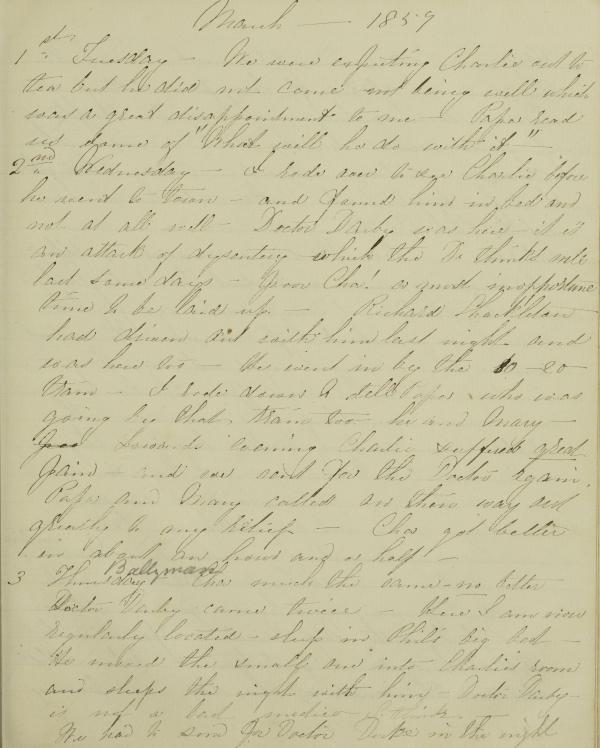 March — 1859
1st Tuesday — We were expecting Charlie out to
tea but he did not come not being well which
was a great disappointment to me — Papa read
us some of "What will he do with it"
2nd Wednesday — I rode over to see Charlie before
he went to town — and found him in bed and
not at all well — Doctor Darby was here — it is
an attack of dysentery which the Dr thinks will
last some days — Poor Cha! a most inopportune
time to be laid up — Richard Shackleton
had driven out with him last night and
was here too — He went in by the 10 - 20
train — I rode down to tell Papa who was
going by that train too he and Mary —
Towards evening Charlie suffered great
pain — and we sent for the Doctor again.
Papa and Mary called on their way out
greatly to my relief — Cha got better
in about an hour and a half —
Ballyman
3 Thursday Cha much the same — no better
Doctor Darby came twice — Here I am now
regularly located — sleep in Phil's big bed —
He moved the small one into Charlie's room
and sleeps the night with him — Doctor Darby
is not a bad medico I think
We had to send for Doctor in the night